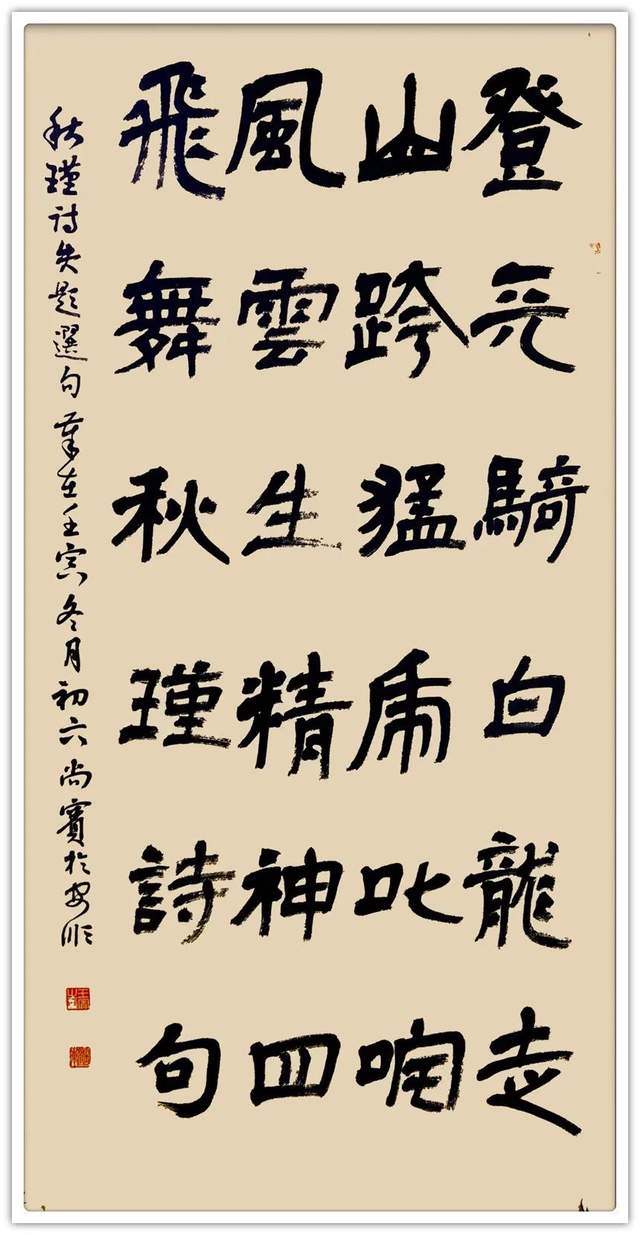 登天騎白龍走
山跨猛虎叱咤
風雲生精神四
飛舞秋瑾詩句
秋瑾诗失题選句歲在壬寅冬月初六尚賓於安順